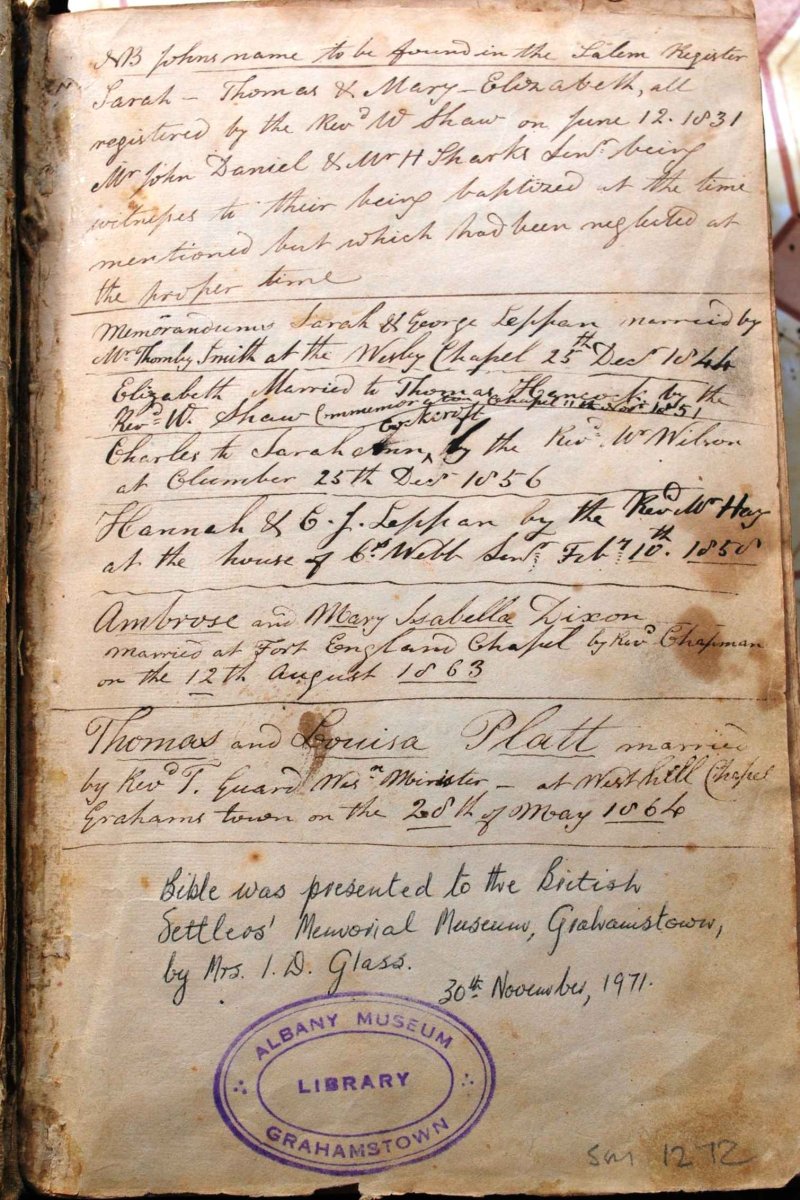 NB Johns name to be found in the Salem Register
Sarah - Thomas & Mary-Elizabeth, all
registered by the Revd W Shaw on June 12. 1831
Mr John Daniel & Mr H Sharks Senr being
witnesses to their being baptized at the time
mentioned but which had been neglected at
the proper time
Memorandums Sarah & George Leppan married by
Mr Thornby Smith at the Wesley Chapel 25th Decr 1844
Elizabeth Married to Thomas Hancock by the
Revd W. Shaw Commemoration Chapel Novr 1851
Cockcroft
Charles to Sarah Ann ^ by the Revd Wm Wilson
at Clumber 25th Decr 1856
Hannah & C. J. Leppan by the Revd Mr Hay
at the house of Webb Senr Feby 10th. 1858
Ambrose and Mary Isabella Dixon
married at Fort England Chapel by Revd Chapman
on the 12th August 1863
Thomas and Louisa Platt married
by Revd T. Guard Wesn Minister - at West hill Chapel
Grahams town on the 28th of May 1864
Bible was presented to the British
Settlers' Memorial Museum, Grahamstown,
by Mrs. I. D. Glass.
30th November, 1971.
ALBANY MUSEUM
LIBRARY
GRAHAMSTOWN
SM 1272